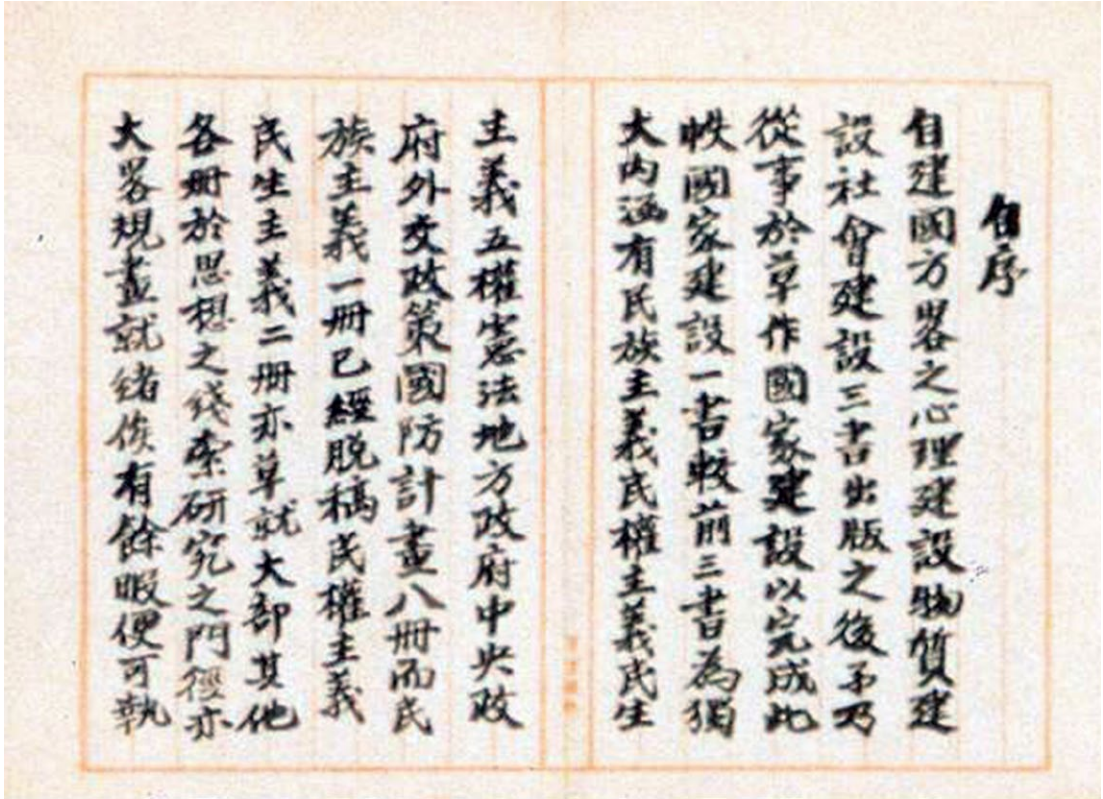 自序
自建國方畧之心理建設物質建
設社會建設三書出版之後予乃
從事於草作國家建設以完成此
帙國家建設一書較前三書為獨
大內涵有民族主義民權主義民生
主義五權憲法地方政府中央政
府外交政策國防計畫八冊而民
族主義一冊已經脫稿民權主義
民生主義二冊亦草就大部其他
各冊於思想之綫索研究之門徑亦
大畧規畫就緒俟有餘暇便可執